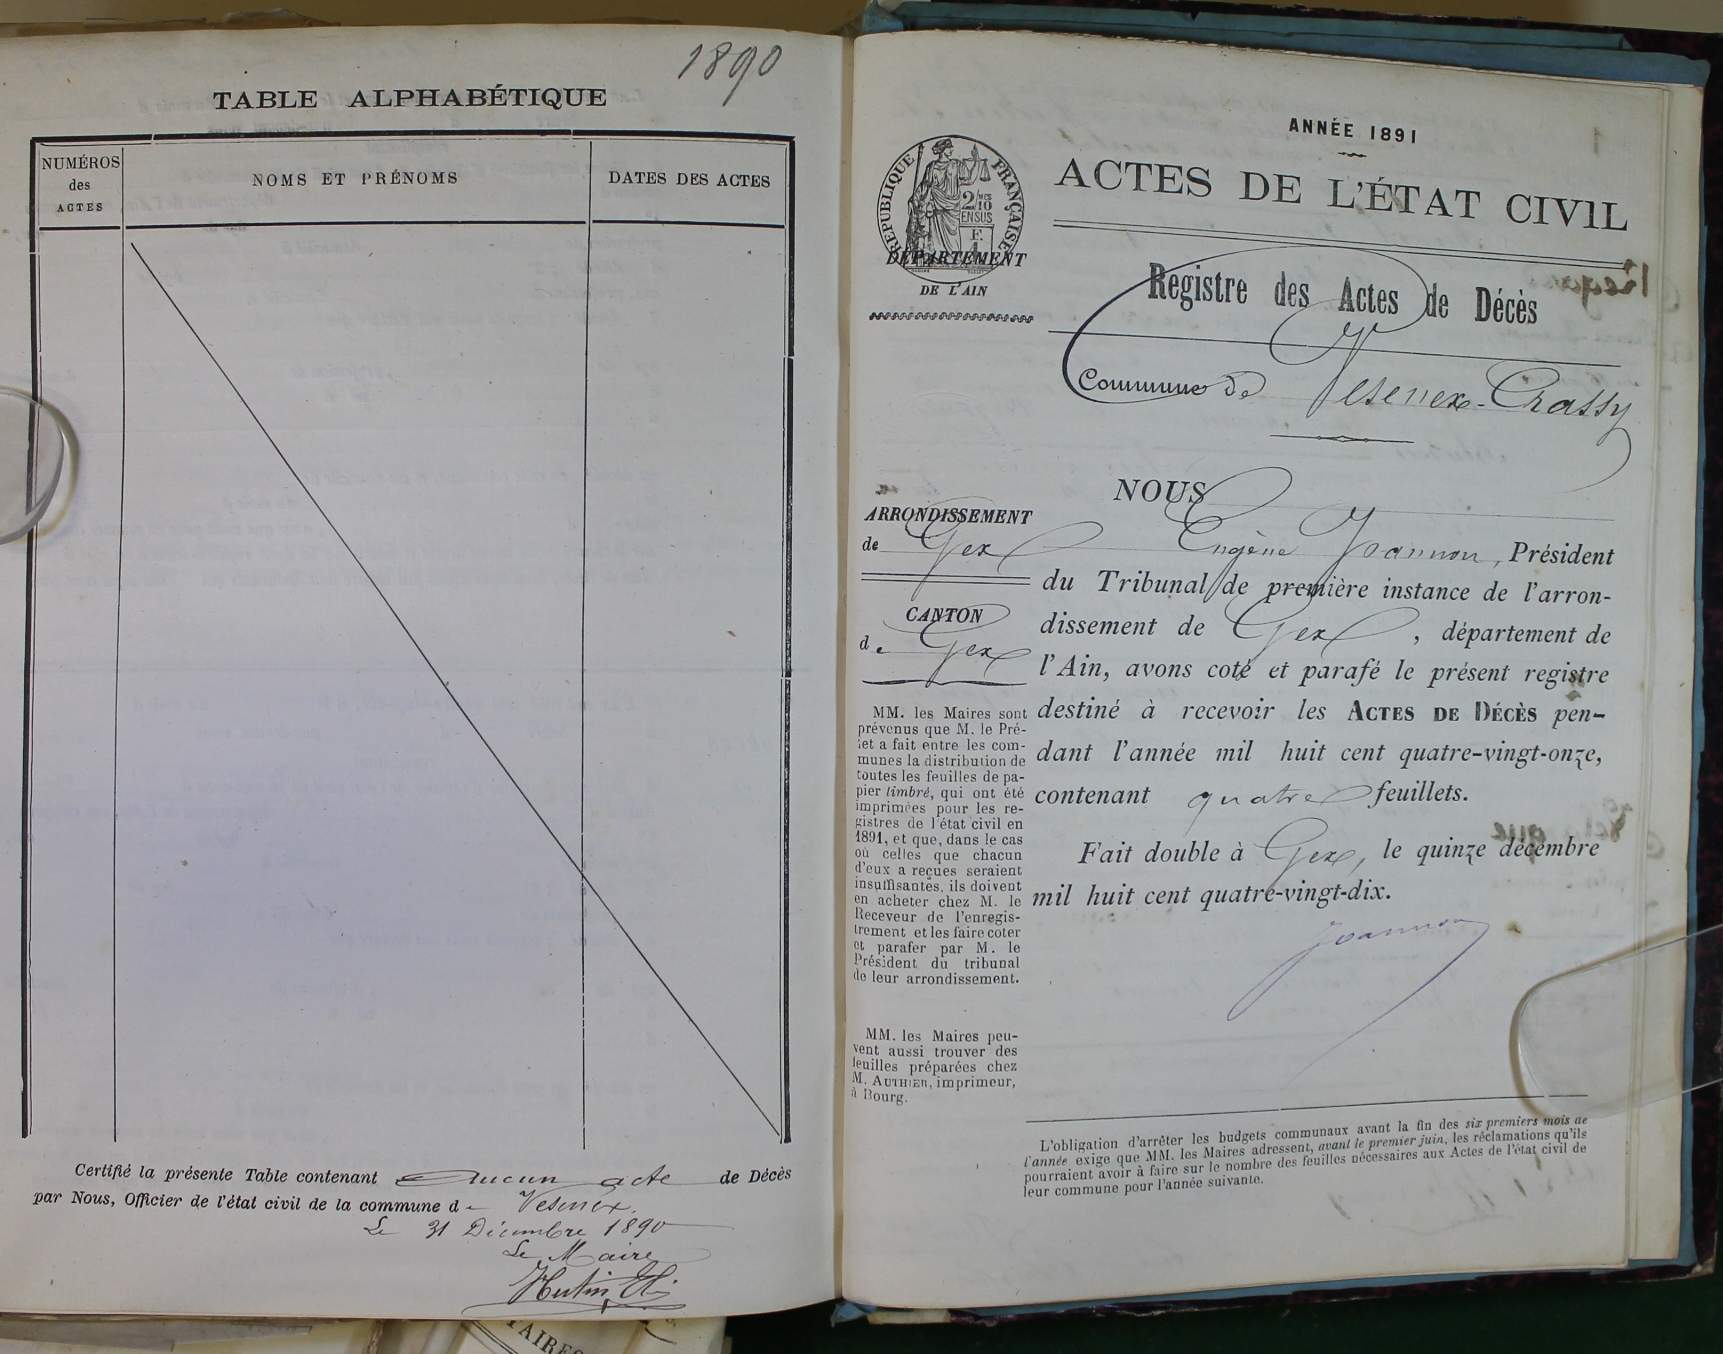 1890
TABLE ALPHABÉTIQUE
NUMÉROS
des
ACTES
NOMS ET PRÉNOMS
DATES DES ACTES
Certifié la présente Table contenant aucun acte de Décès
par Nous, Officier de l'état civil de la commune de Vesenex.
Le 31 Décembre 1890
Le Maire
Hutin
TAIRES
ANNÉE 1891
ACTES DE L'ÉTAT CIVIL
RÉPUBLIQUE FRANÇAISE
2/10
EN SUS
DÉPARTEMENT
DE L'AIN
Registre des Actes de Décès
Commune de Vesenex-Crassy
ARRONDISSEMENT
de Gex
CANTON
de Gex
MM. les Maires sont
prévenus que M. le Pré-
fet a fait entre les com-
munes la distribution de
toutes les feuilles de pa-
pier timbré, qui ont été
imprimées pour les re-
gistres de l'état civil en
1891, et que, dans le cas
où celles que chacun
d'eux a reçues seraient
insuffisantes, ils doivent
en acheter chez M. le
Receveur de l'enregis-
trement et les faire coter
et parafer par M. le
Président du tribunal
de leur arrondissement.
MM. les Maires peu-
vent aussi trouver des
feuilles préparées chez
M. AUTHIER, imprimeur,
à Bourg.
NOUS
Eugène Joannon, Président
du Tribunal de première instance de l'arron-
dissement de Gex, département de
l'Ain, avons coté et parafé le présent registre
destiné à recevoir les ACTES DE DÉCÈS pen-
dant l'année mil huit cent quatre-vingt-onze,
contenant quatre feuillets.
Fait double à Gex, le quinze décembre
mil huit cent quatre-vingt-dix.
Joannon
L'obligation d'arrêter les budgets communaux avant la fin des six premiers mois de
l'année exige que MM. les Maires adressent, avant le premier juin, les réclamations qu'ils
pourraient avoir à faire sur le nombre des feuilles nécessaires aux Actes de l'état civil de
leur commune pour l'année suivante.